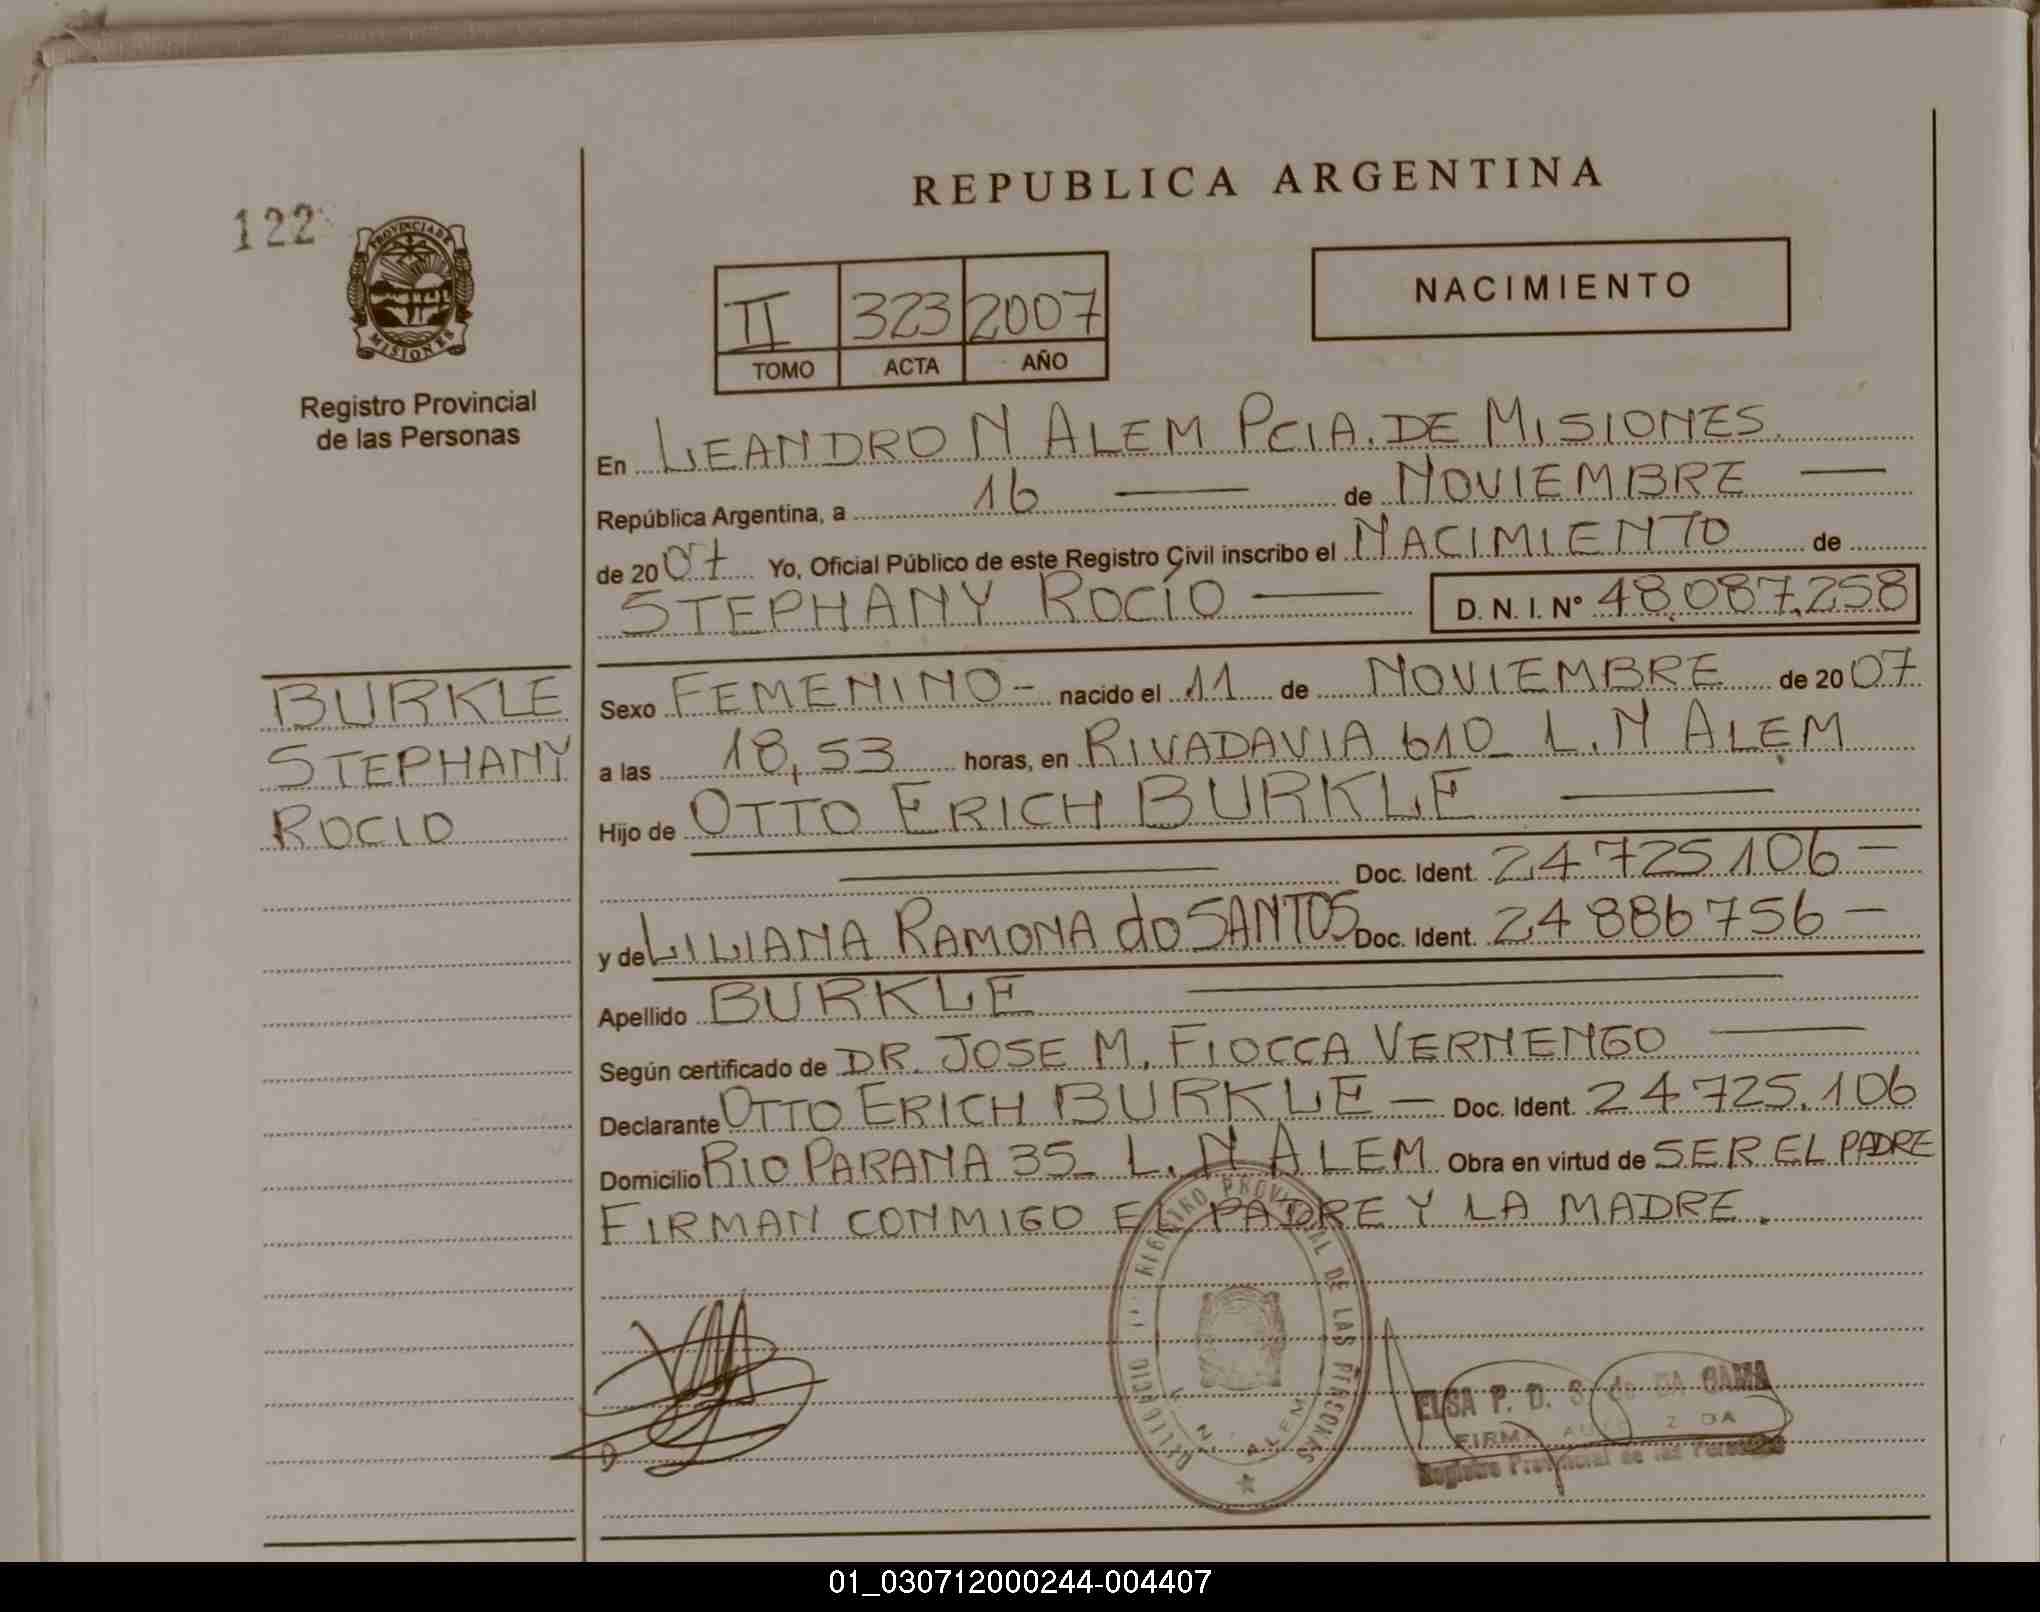 REPUBLICA ARGENTINA
122
PROVINCIA DE
MISIONES
Registro Provincial
de las Personas
II 323 2007
TOMO ACTA AÑO
NACIMIENTO
En LEANDRO N ALEM PCIA. DE MISIONES
República Argentina, a 16 — de NOVIEMBRE —
de 2007 Yo, Oficial Público de este Registro Civil inscribo el NACIMIENTO de
STEPHANY ROCÍO — D. N. I. N° 48.087.258
BURKLE
STEPHANY
ROCIO
Sexo FEMENINO - nacido el 11 de NOVIEMBRE de 2007
a las 18,53 horas, en RIVADAVIA 610 L.N ALEM
Hijo de OTTO ERICH BURKLE —
— Doc. Ident. 24 725 106 —
y de LILIANA RAMONA do SANTOS Doc. Ident. 24 886 756 —
Apellido BURKLE —
Según certificado de DR. JOSE M. FIOCCA VERNENGO —
Declarante OTTO ERICH BURKLE — Doc. Ident. 24.725.106
Domicilio RIO PARANA 35 L.N ALEM Obra en virtud de SER EL PADRE
FIRMAN CONMIGO EL PADRE Y LA MADRE.
REGISTRO PROVINCIAL DE LAS PERSONAS
N. ALEM
ELSA P. D. S. de DA GAMA
FIRMA
Registro Provincial de las Personas
01_030712000244-004407